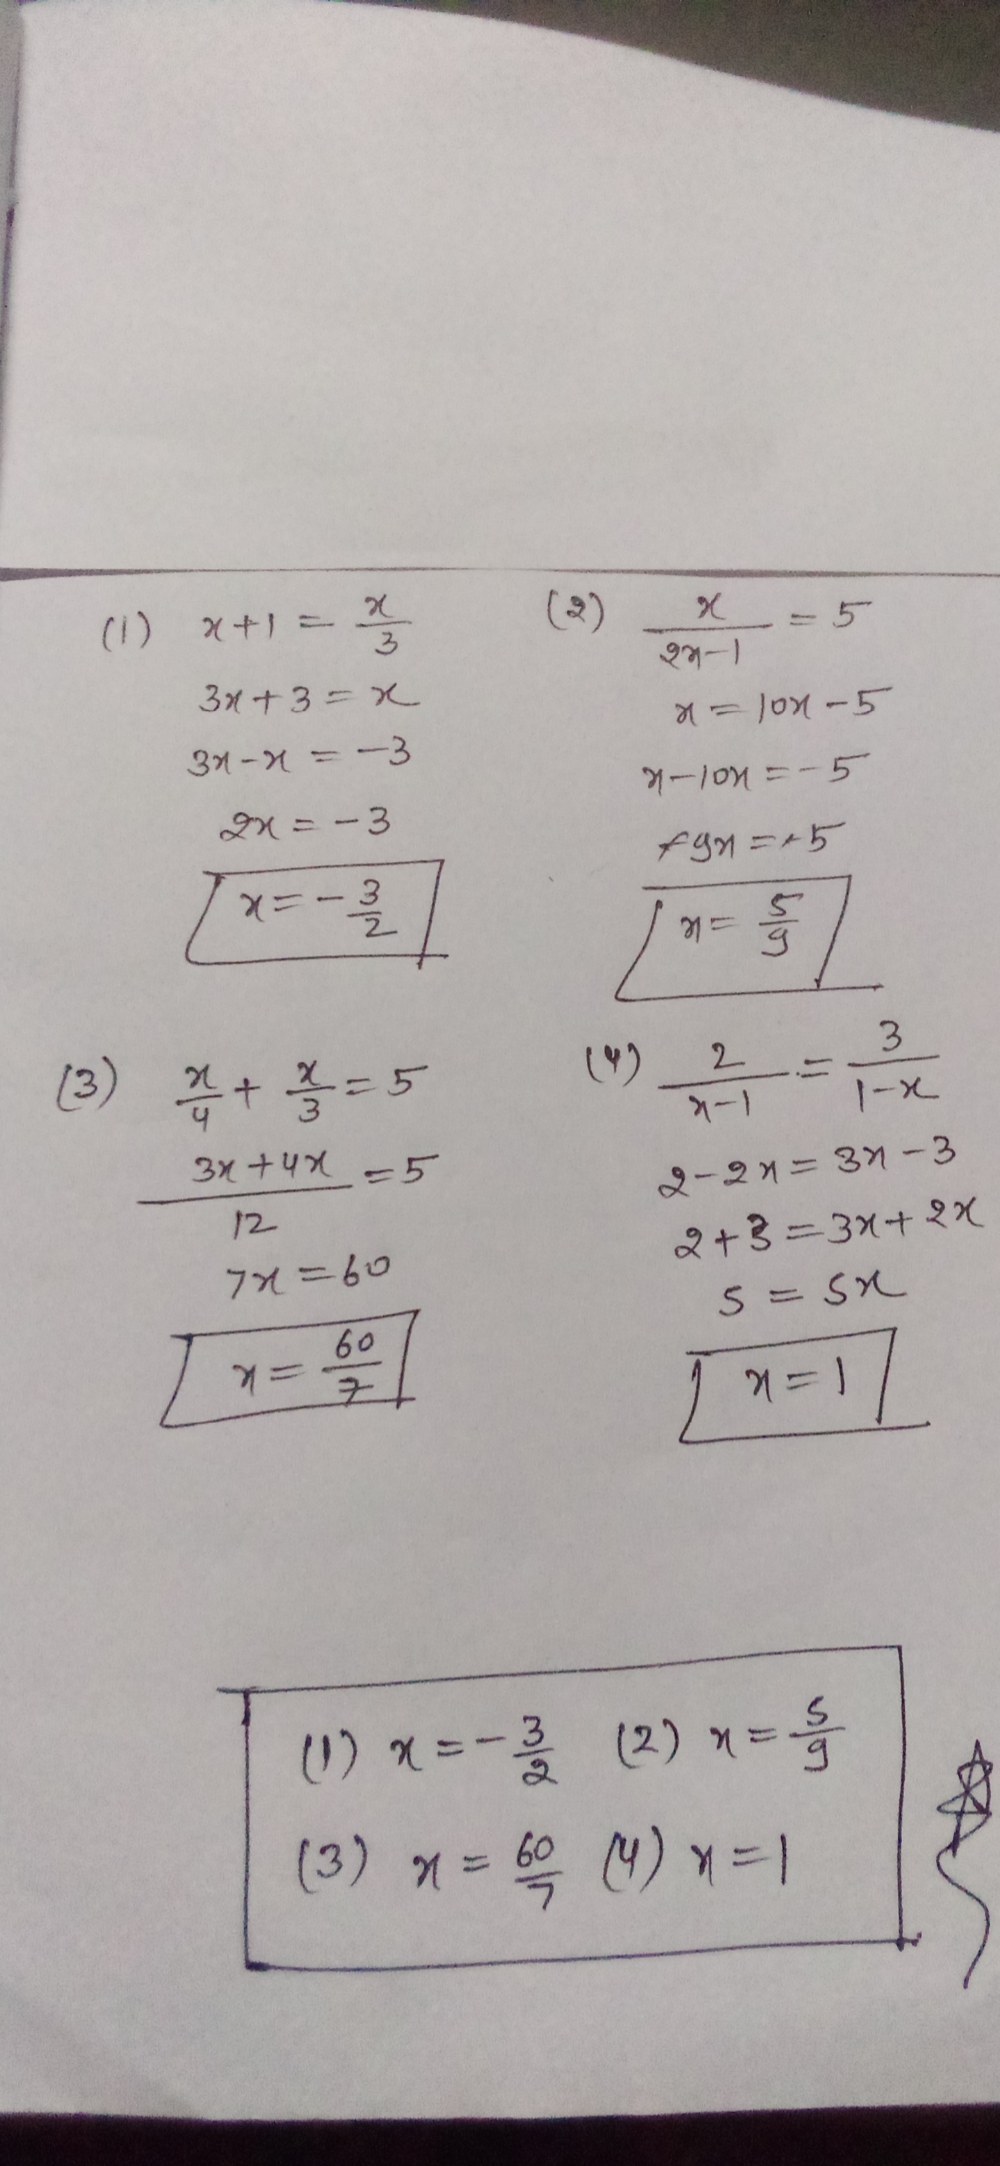 (1) x+1 = x/3
3x+3 = x
3x-x = -3
2x = -3
x = -3/2
(2) x/(2x-1) = 5
x = 10x-5
x-10x = -5
-9x = -5
x = 5/9
(3) x/4 + x/3 = 5
(3x+4x)/12 = 5
7x = 60
x = 60/7
(4) 2/(x-1) = 3/(1-x)
2-2x = 3x-3
2+3 = 3x+2x
5 = 5x
x = 1
(1) x = -3/2 (2) x = 5/9
(3) x = 60/7 (4) x = 1